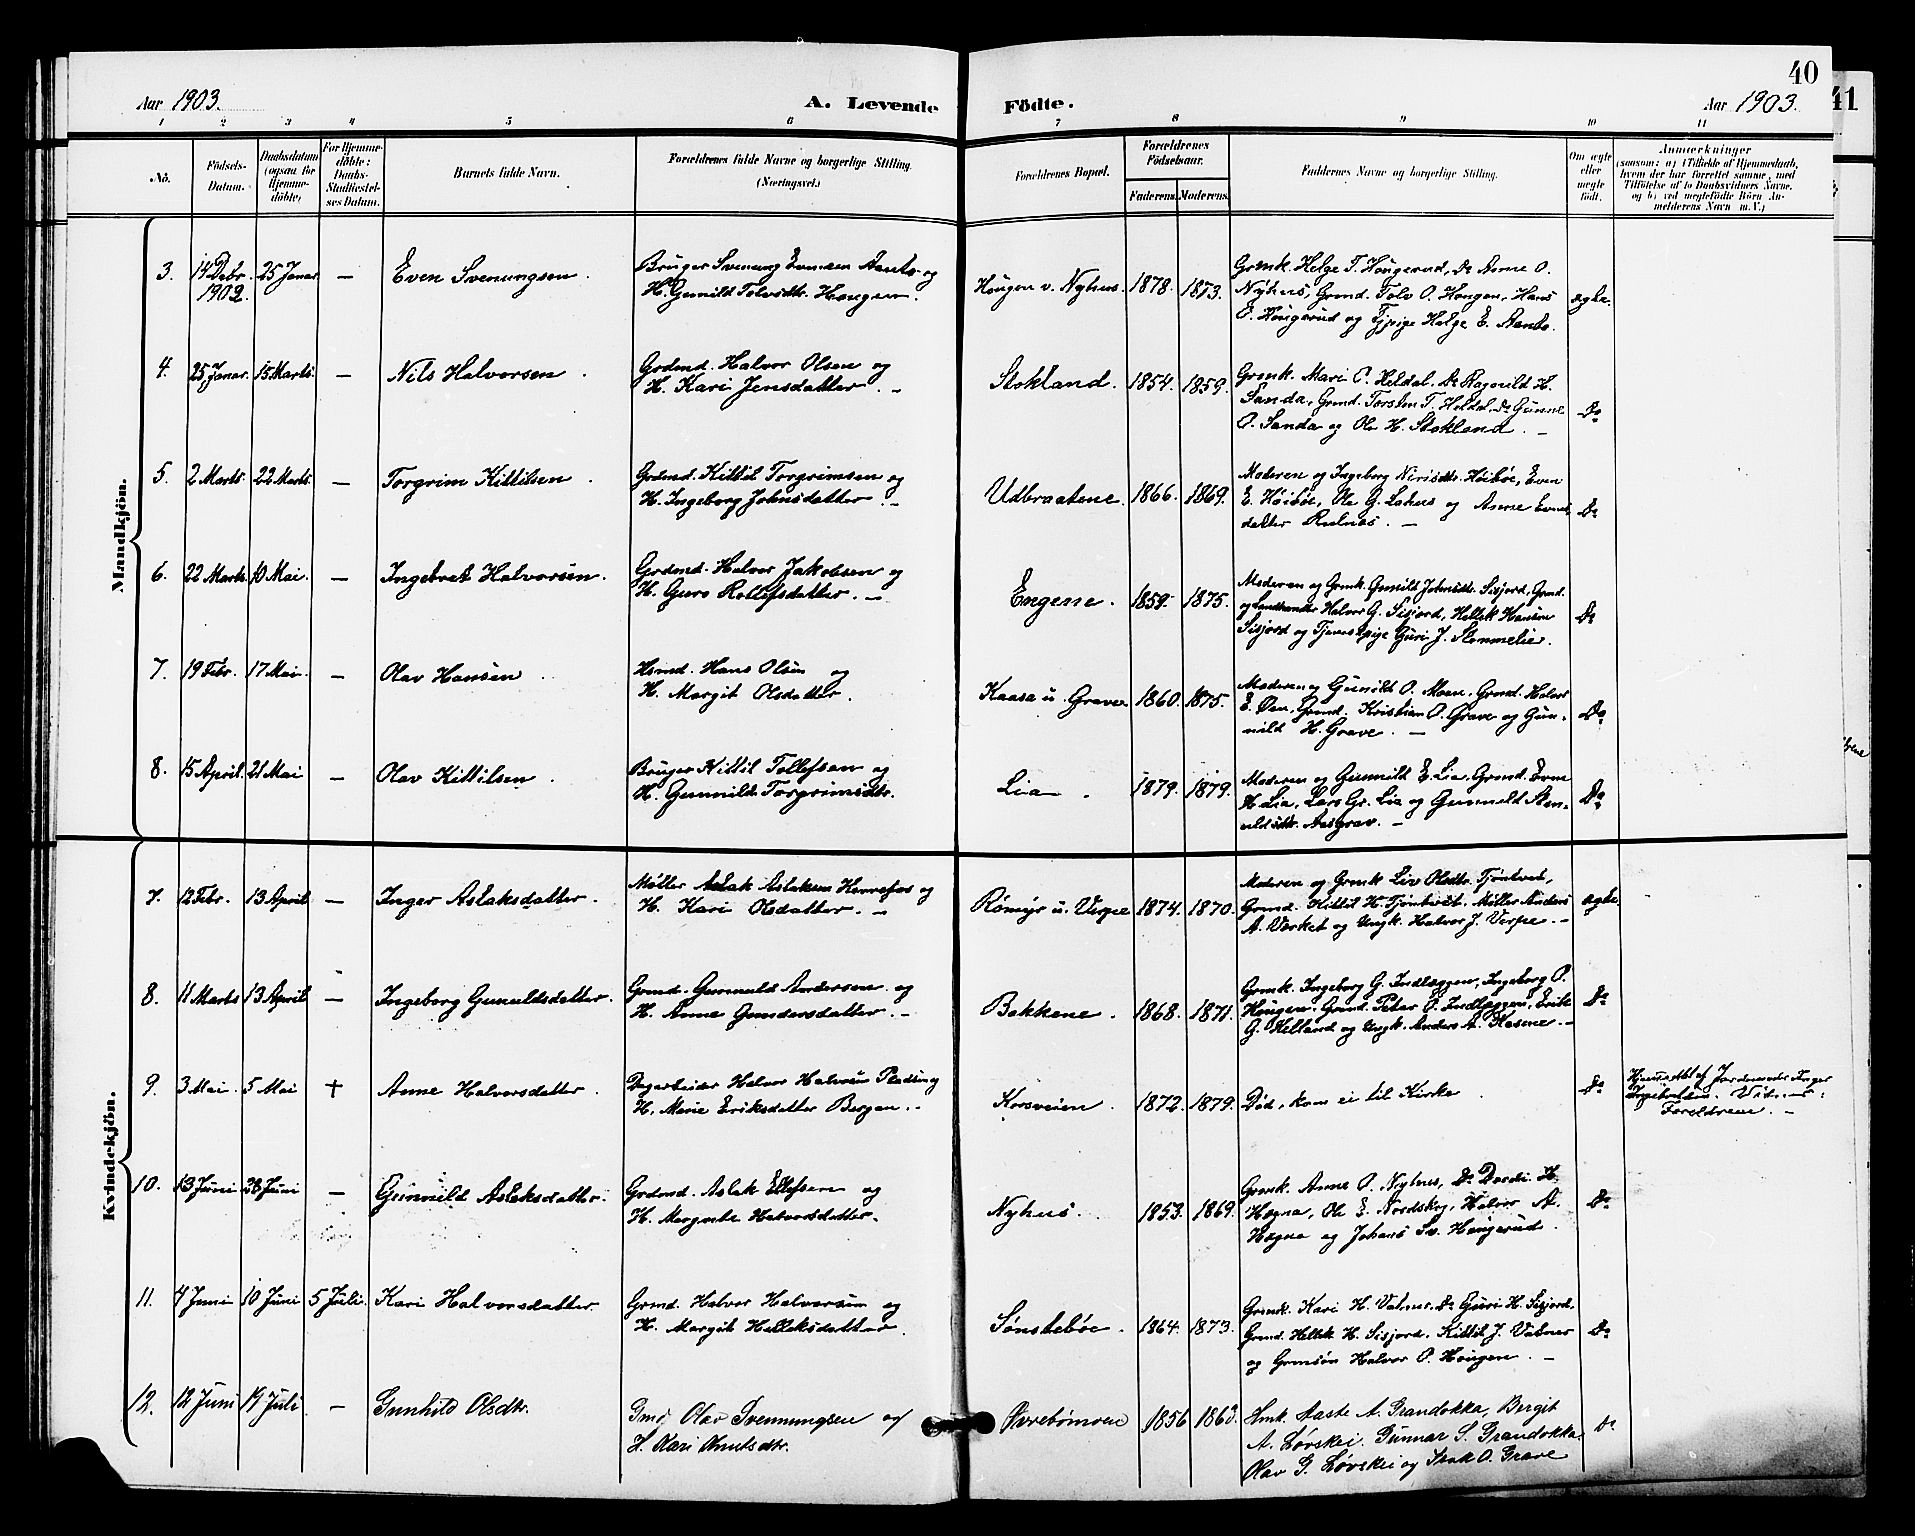 40
41
Aar 1903.
A. Levende
Födte.
Aar 1903.
1 2 3 4 5 6 7 8 9 10 11
No.
Födsels-
Datum.
Daabsdatum
(ogsaa for
Hjemme-
döbte)
For Hjemme-
döbte:
Daabs-
Stadfæstel-
ses Datum.
Barnets fulde Navn.
Forældrenes fulde Navne og borgerlige Stilling.
(Næringsvei.)
Forældrenes Bopæl.
Forældrenes
Födselsaar.
Faderens. Moderens.
Faddernes Navne og borgerlige Stilling.
Om ægte
eller
uægte
födt.
Anmærkninger
(saasom: a) i Tilfælde af Hjemmedaab,
hvem der har forrettet samme, med
Tilföielse af to Daabsvidners Navne,
og b) ved uægtefödte Börn An-
melderens Navn m. V.)
Mandkjön.
3. 14 Debr. 1902 25 Janar. — Even Svenungsen.
Bruger Svenung Evensen Aanto og
H. Gunild Tolvsdtr. Hougen.
Hougen v. Nyhus. 1878. 1873.
Grmk. Helge T. Hougerud, Do Anne O.
Nyhus, Grmd. Tolv O. Hougen, Hans
O. Hougerud og Tjpige Helge E. Aanto.
ægte.
4. 25 Janar. 15 Marts. — Nils Halvorsen.
Grdmd. Halvor Olsen og
H. Kari Jensdatter. —
Stokland. 1854. 1859.
Grmk. Mari O. Heldal. Do Ragnild H.
Sanda, Grmd. Torsten T. Heldal, Do Gunne
O. Sanda og Ole H. Stokland. —
Do
5. 2 Marts. 22 Marts. — Torgrim Kittilsen.
Grdmd. Kittil Torgrimsen og
H. Ingeborg Johnsdatter. —
Udbraatene. 1866. 1869.
Moderen og Ingeborg Nirisdtr. Höiböe, Even
E. Höiböe, Ole G. Lahus og Anne Evens-
datter Rulnes. —
Do
6. 22 Marts. 10 Mai. — Ingebret Halvorsen.
Grdmd. Halvor Jakobsen og
H. Guro Rollefsdatter. —
Engene. 1859. 1875.
Moderen og Grmk. Gunild Johnsdtr. Sisjord, Grmd.
og Landhandler Halvor G. Sisjord, Hellek Hansen
Sisjord og Tjenestpige Guri J. Stemmelie.
Do
7. 19 Febr. 17 Mai. — Olav Hansen
Hsmd. Hans Olsen og
H. Margit Olsdatter.
Kaasa u. Grave 1860. 1875.
Moderen og Gunild O. Moen, Grmd. Halvor
E. Øen, Grmd. Kristian O. Grave og Gun-
nild H. Grave. —
Do
8. 15 April. 21 Mai — Olav Kittilsen.
Bruger Kittil Tollefsen og
H. Gunnild Torgrimsdtr.
Lia. 1879. 1879.
Moderen og Gunnild E. Lia, Grmd. Even
H. Lia, Lars Gr. Lia og Gunnuld Sten-
uldsdtr. Aasgrav. —
Do
Kvindekjön.
7. 12 Febr. 13 April — Inger Aslaksdatter.
Møller Aslak Aslaksen Hennefos og
H. Kari Olsdatter. —
Römyr u. Verpe 1874. 1870.
Moderen og Grmk Liv Olsdtr. Tjöntveit,
Grmd. Kittil H. Tjöntveit. Møller Anders
A. Værket og Ungk. Halvor J. Verpe. —
ægte.
8. 11 Marts 13 April — Ingeborg Gunuldsdatter.
Grmd. Gunnuld Andersen og
H. Anne Gundersdatter. —
Bakkene. 1868. 1871.
Grmk. Ingeborg G. Indlæggen, Ingeborg P.
Hougen. Grmd. Peter O. Indlæggen, Erik
G. Helland og Ungk. Anders A. Hasme. —
Do
9. 3 Mai. 5 Mai † Anne Halvorsdatter.
Dagarbeider Halvor Halvorsen Pladsen og
H. Marie Eriksdatter Bergan. —
Korsveien. 1872. 1879.
Död, kom ei til Kirke.
Do
Hjemmedöbt af Jordemoder Inger
Vitner:
Foreldrene. —
10. 13 Juni 28 Juni — Gunnuld Aslaksdatter.
Grdmd. Aslak Ellefsen og
H. Margrete Halvorsdatter.
Nyhus. 1853. 1869.
Grmk. Anne O. Nyhus, Do Dordi H.
Hægna, Ole E. Nordskog, Halvor A.
Hægna og Johans Sv. Hougerud.
Do
11. 4 Juni 10 Juni 5 Juli. Kari Halvorsdatter.
Grmd. Halvor Halvorsen og
H. Margit Helleksdatter.
Sönsteböe. 1864. 1873.
Grmk. Kari H. Vatnar. Do Guri H. Sisjord.
Grmd. Hellek H. Sisjord. Kittil J. Vatnar
og Grmsön Halvor P. Hougen. —
Do
12. 12 Juni 19 Juli. — Gunhild Olsdtr.
Gmd Olav Svennungsen og
H. Kari Knutsdtr.
Øvrebömoen 1856 1863.
Hmk. Aaste A. Grandokka, Bergit
A. Lövskei. Gunnar S. Grandokka.
Olav G. Lövskei og Isak O. Grave
Do